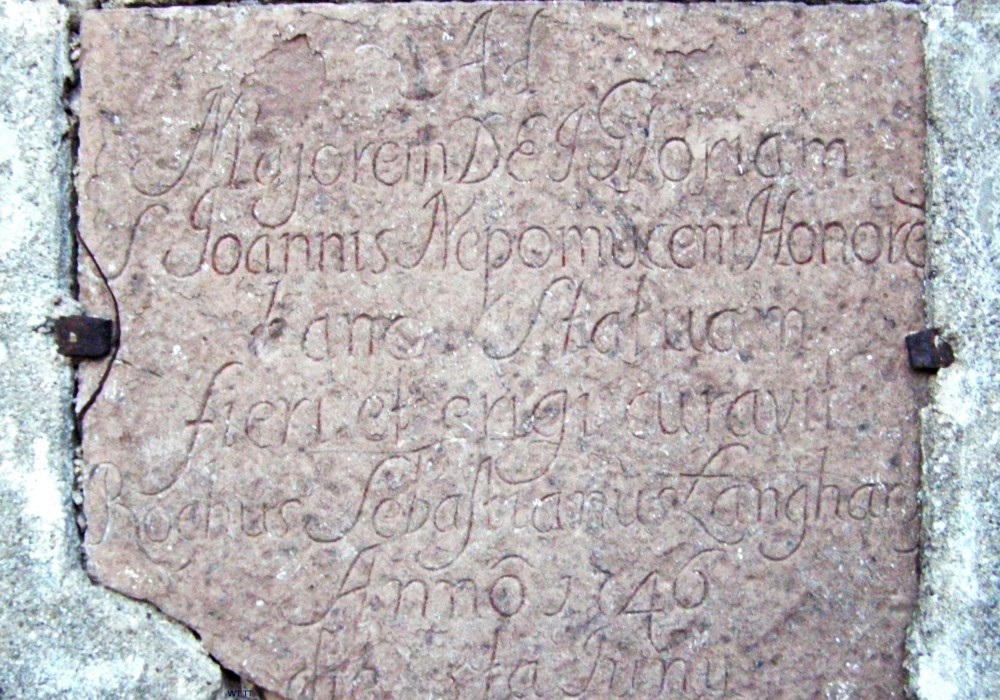 Ad
Majorem DEJ Gloriam
S Joannis Nepomuceni Honorē
hanc Statuam
fieri et erigi curavit
Rochus Sebastianus Langhans
Annô 1746
die Juny